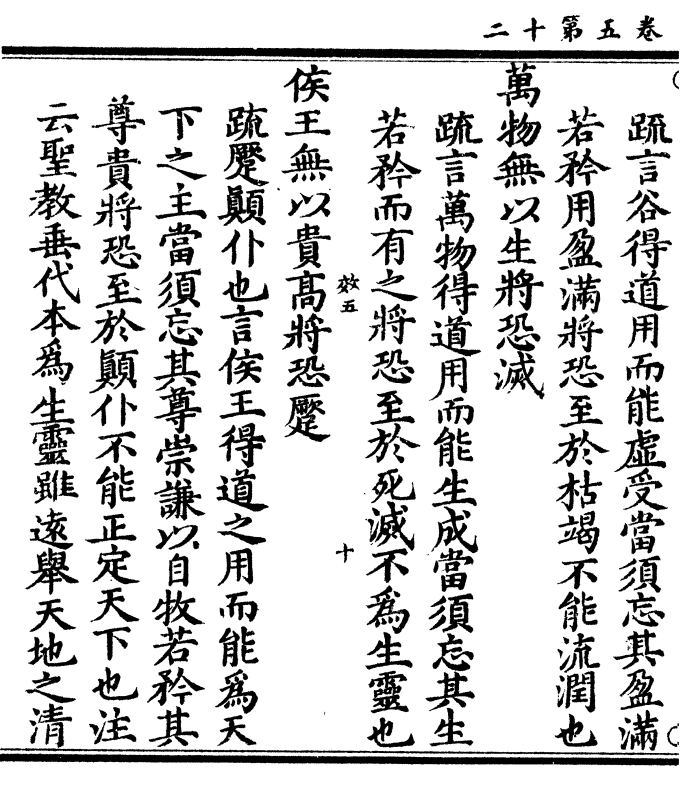 卷五第十二
疏言谷得道用而能虛受當須忘其盈滿
若矜用盈滿將恐至於枯竭不能流潤也
萬物無以生將恐滅
疏言萬物得道用而能生成當須忘其生
若矜而有之將恐至於死滅不爲生靈也
效五
十
侯王無以貴高將恐蹷
疏蹷顛仆也言侯王得道之用而能爲天
下之主當須忘其尊崇謙以自牧若矜其
尊貴將恐至於顛仆不能正定天下也注
云聖教垂代本爲生靈雖遠舉天地之清